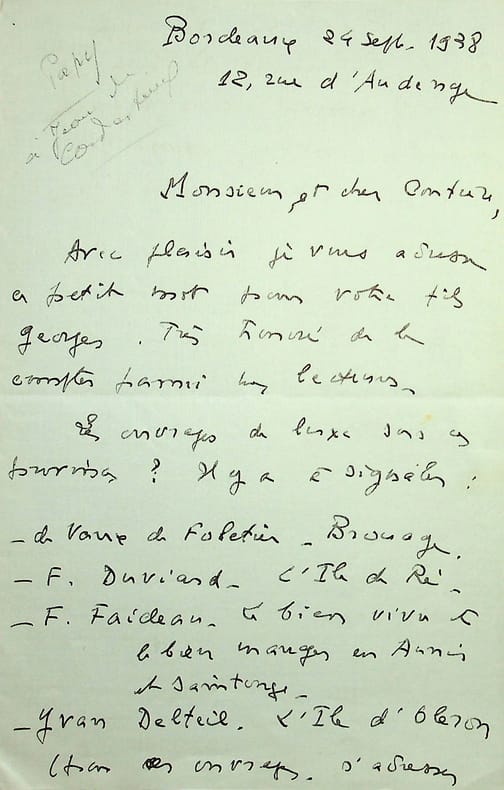 Bordeaux 24 Sept. 1938
12, rue d'Audenge
Papy
à Jean de
Monsieur et cher Confrère,
Avec plaisir je vous adresse
ce petit mot pour votre fils
Georges. Très honoré de le
compter parmi mes lecteurs.
Les ouvrages de luxe sur ces
provinces ? Il y a à signaler :
- de Vaux de Foletier - Brouage.
- F. Duviard - L'Ile de Ré -
- F. Faideau - Le bien vivre et
le bien manger en Aunis
et Saintonge -
- Yvan Delteil. L'Ile d'Oleron
(tous ces ouvrages. s'adresser